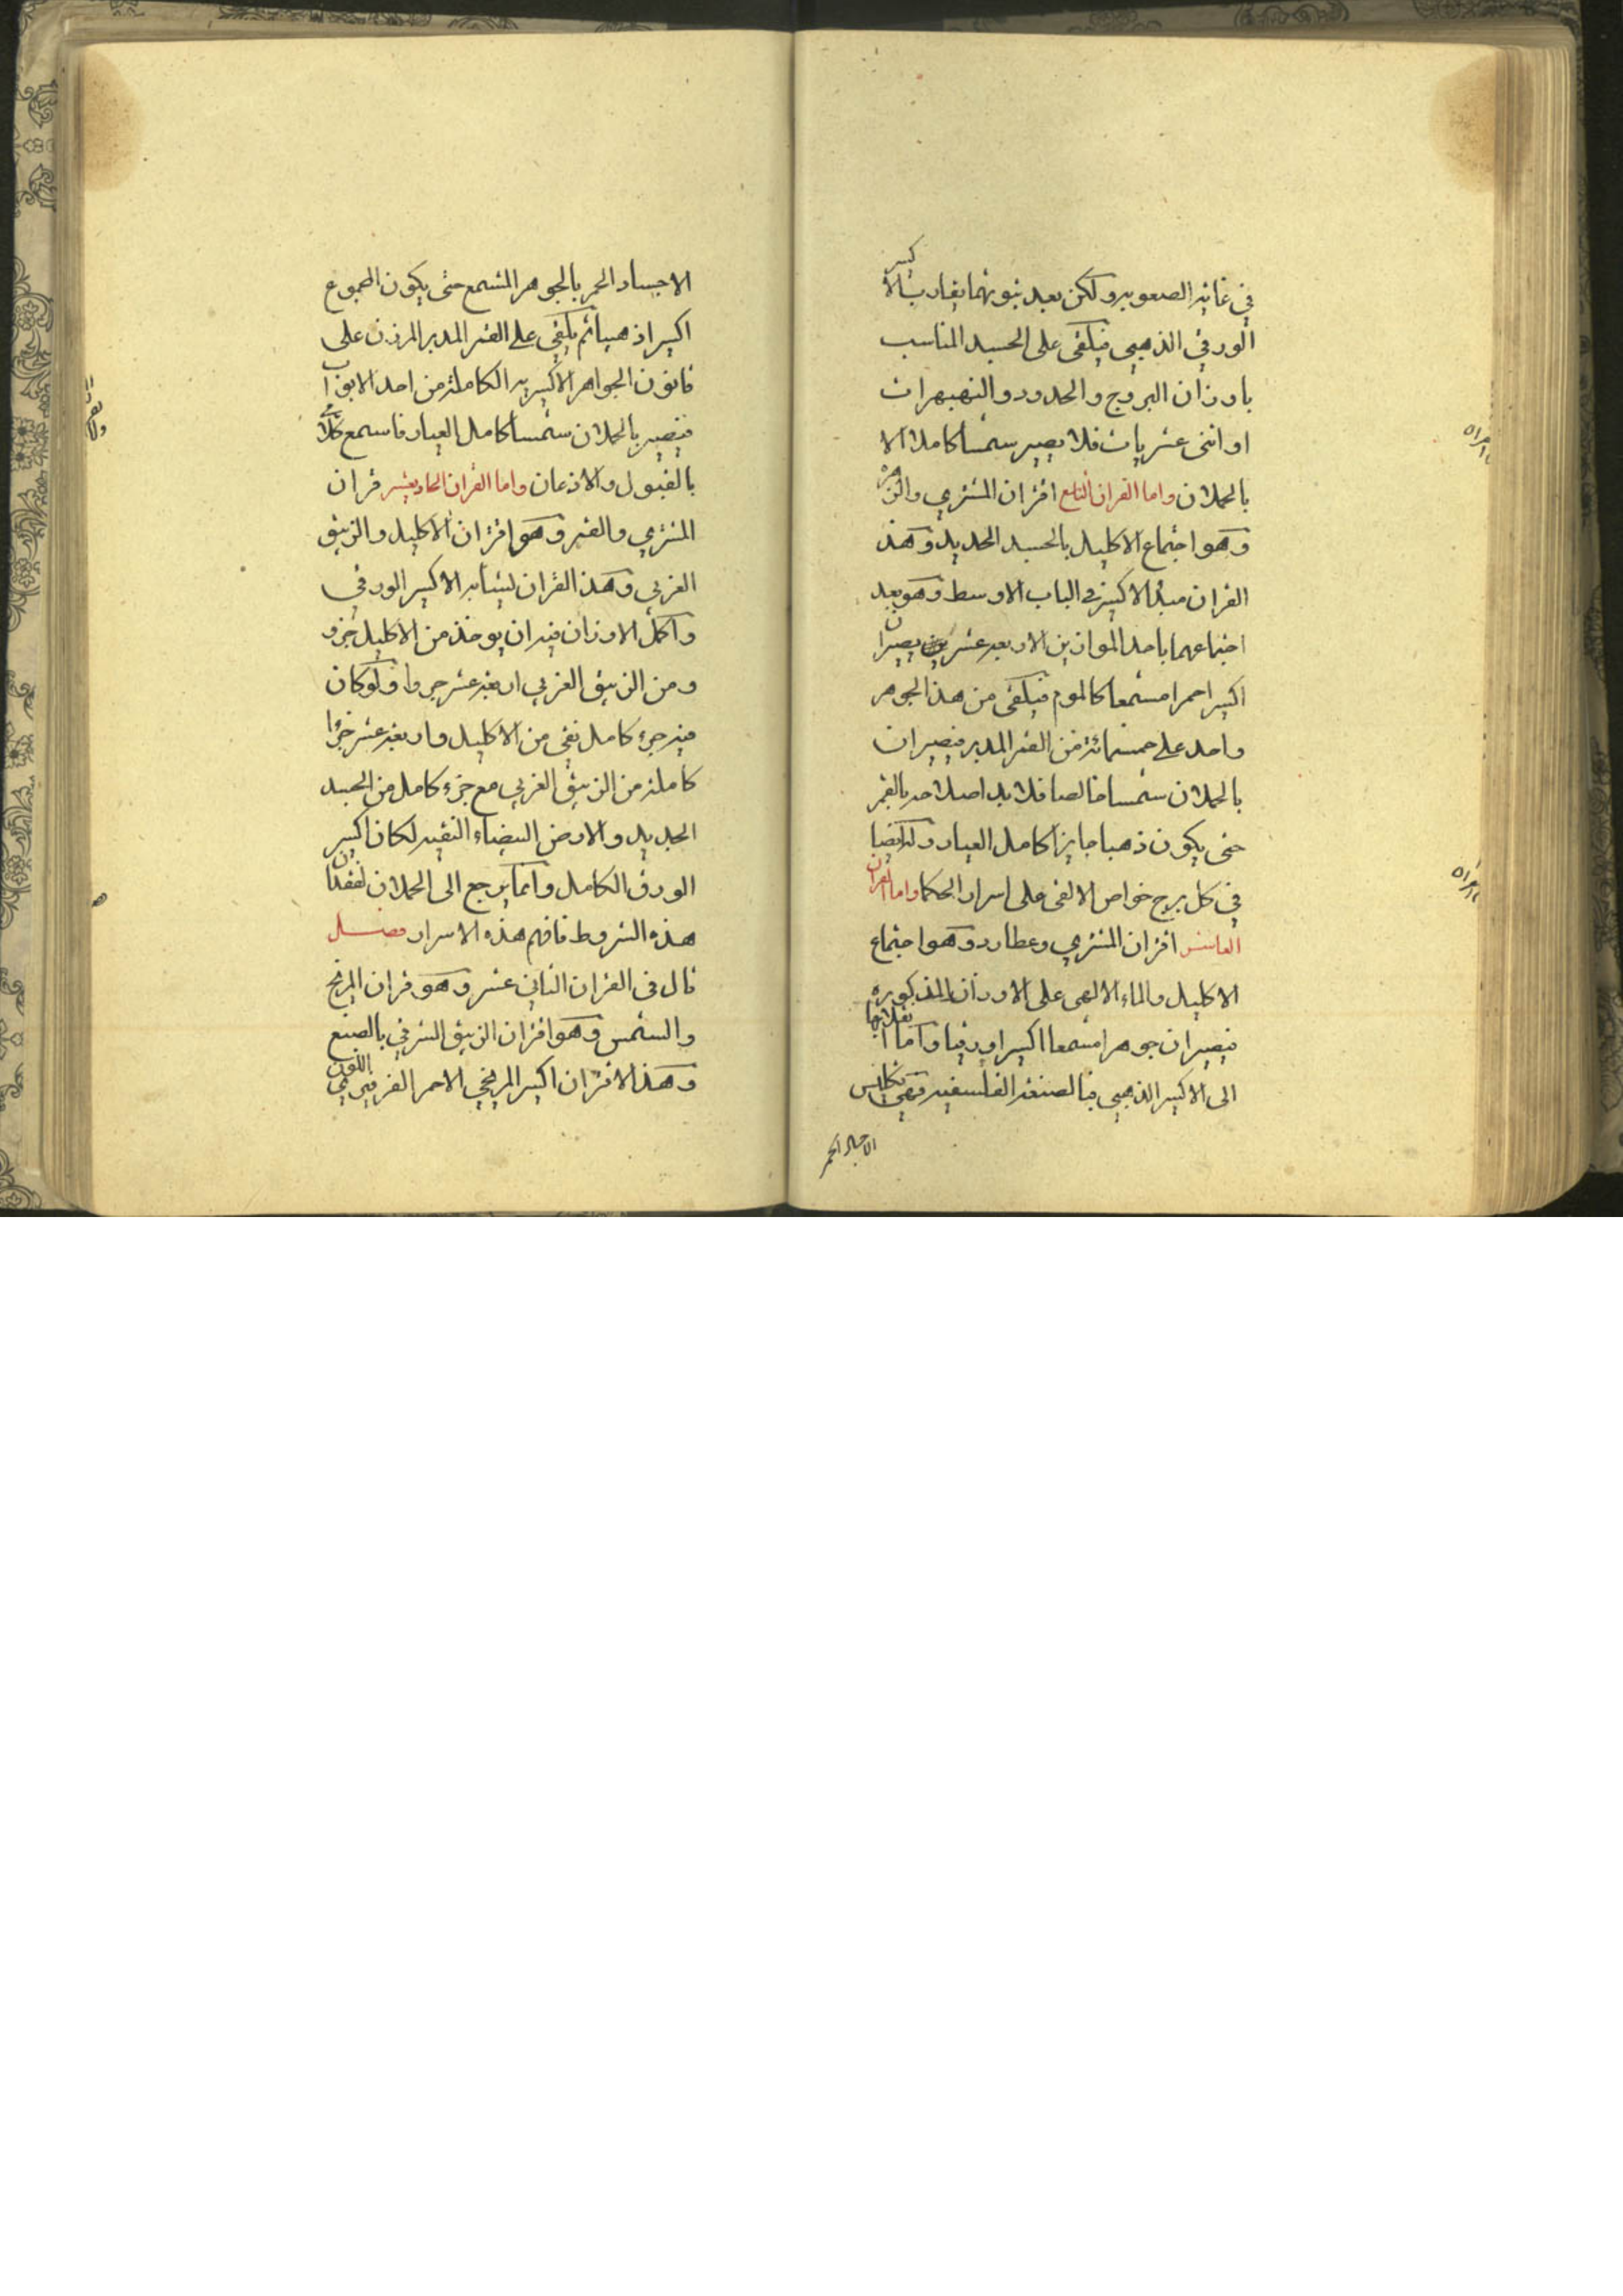 في غاية الصعوبة ولكن بعد ثبوتهما يقارب الاكسير
الورقي الذهبي فيلقى على الجسد المناسب
باوزان البروج والحدود والنهبهرات
او اثنى عشريات فلا يصير شمسا كاملا الا
بالحملان واما القران التاسع اقتران المشتري والزهره
وهو اجتماع الاكليل بالجسد الجديد وهذا
القران مبدأ الاكسير في الباب الاوسط وهو بعد
اجتماعهما باحد الموازين الاربعة عشر يصيران
اكسيرا احمرا مشمعا كالموم فيلقى من هذا الجوهر
واحد على خمسمائة من القمر المدبر فيصيران
بالحملان شمسا خالصا فلا بد اصلاحه بالقمر
حتى يكون ذهبا جايزا كامل العيار وله ايضا
في كل برج خواص لالقى على اسرار الحكما واما القران
العاشر اقتران المشتري وعطارد وهو اجتماع
الاكليل والماء الالهى على الاوزان المذكورة
فيصيران جوهرا مشمعا اكسيرا ورقيا واما انقلابها
الى الاكسير الذهبي فبالصنعة الفلسفية وهي تكليس
الاجساد الحمر
الاجساد الحمر بالجوهر المشمع حتى يكون المجموع
اكسيرا ذهبيا ثم يلقى على القمر المدبر المرزن على
قانون الجواهر الاكسيرية الكاملة من احد الابواب
فيصير بالحملان شمسا كامل العيار فاسمع كلامي
بالقبول والاذعان واما القران الحاديعشر قران
المشتري والقمر وهو اقتران الاكليل والزيبق
الغربي وهذا القران ينشأ به الاكسير الورقي
واكمل الاوزان فيه ان يوخذ من الاكليل جزو
ومن الزيبق الغربي اربعة عشر جروا ولو كان
فيه جزء كامل نقي من الاكليل واربعة عشر جزا
كاملة من الزيبق الغربي مع جزء كامل من الجسد
الجديد والارض البيضاء النقيه لكان اكسير
الورق الكامل وانما يرجع الى الحملان لفقدان
هذه الشروط فافهم هذه الاسرار فصل
قال في القران الثاني عشر وهو قران المريخ
والشمس وهو اقتران الزيبق الشرقي بالصبغ
وهذا الاقتران اكسير المريخي الاحمر القرمزي اللون